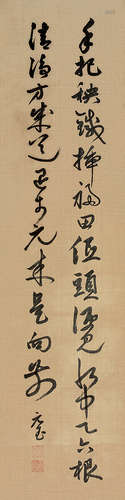 手把秧鍼插福田低頭水中天六根
清淨方成道退步元來是向前